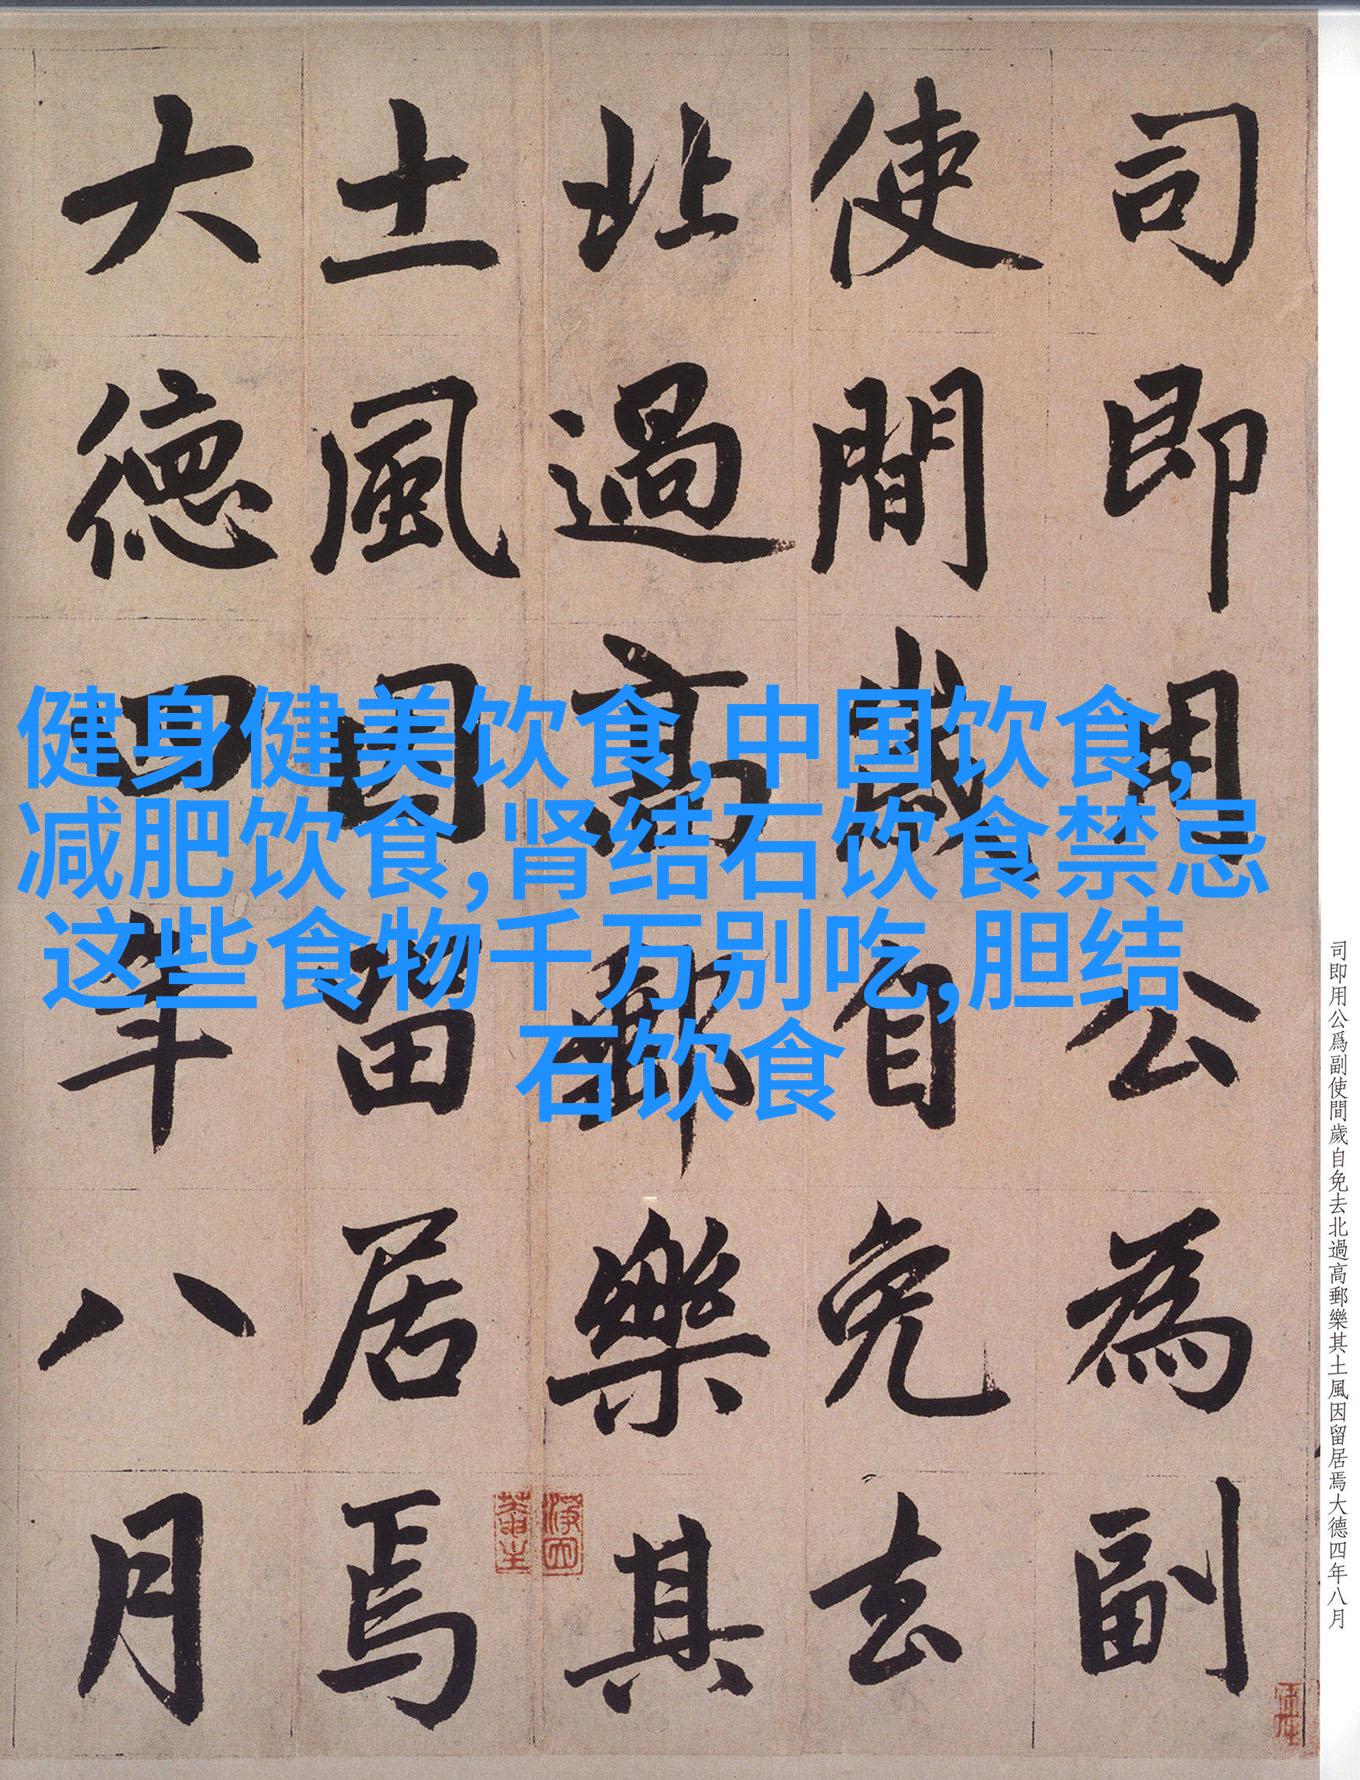 司即用公為副
使間歲自免去
北過高郵樂其
土風因留居焉
大德四年八月
健身健美饮食,中国饮食,
减肥饮食,肾结石饮食禁忌
这些食物千万别吃,胆结
石饮食
司即用公爲副使間歲自免去北過高郵樂其土風因留居焉大德四年八月